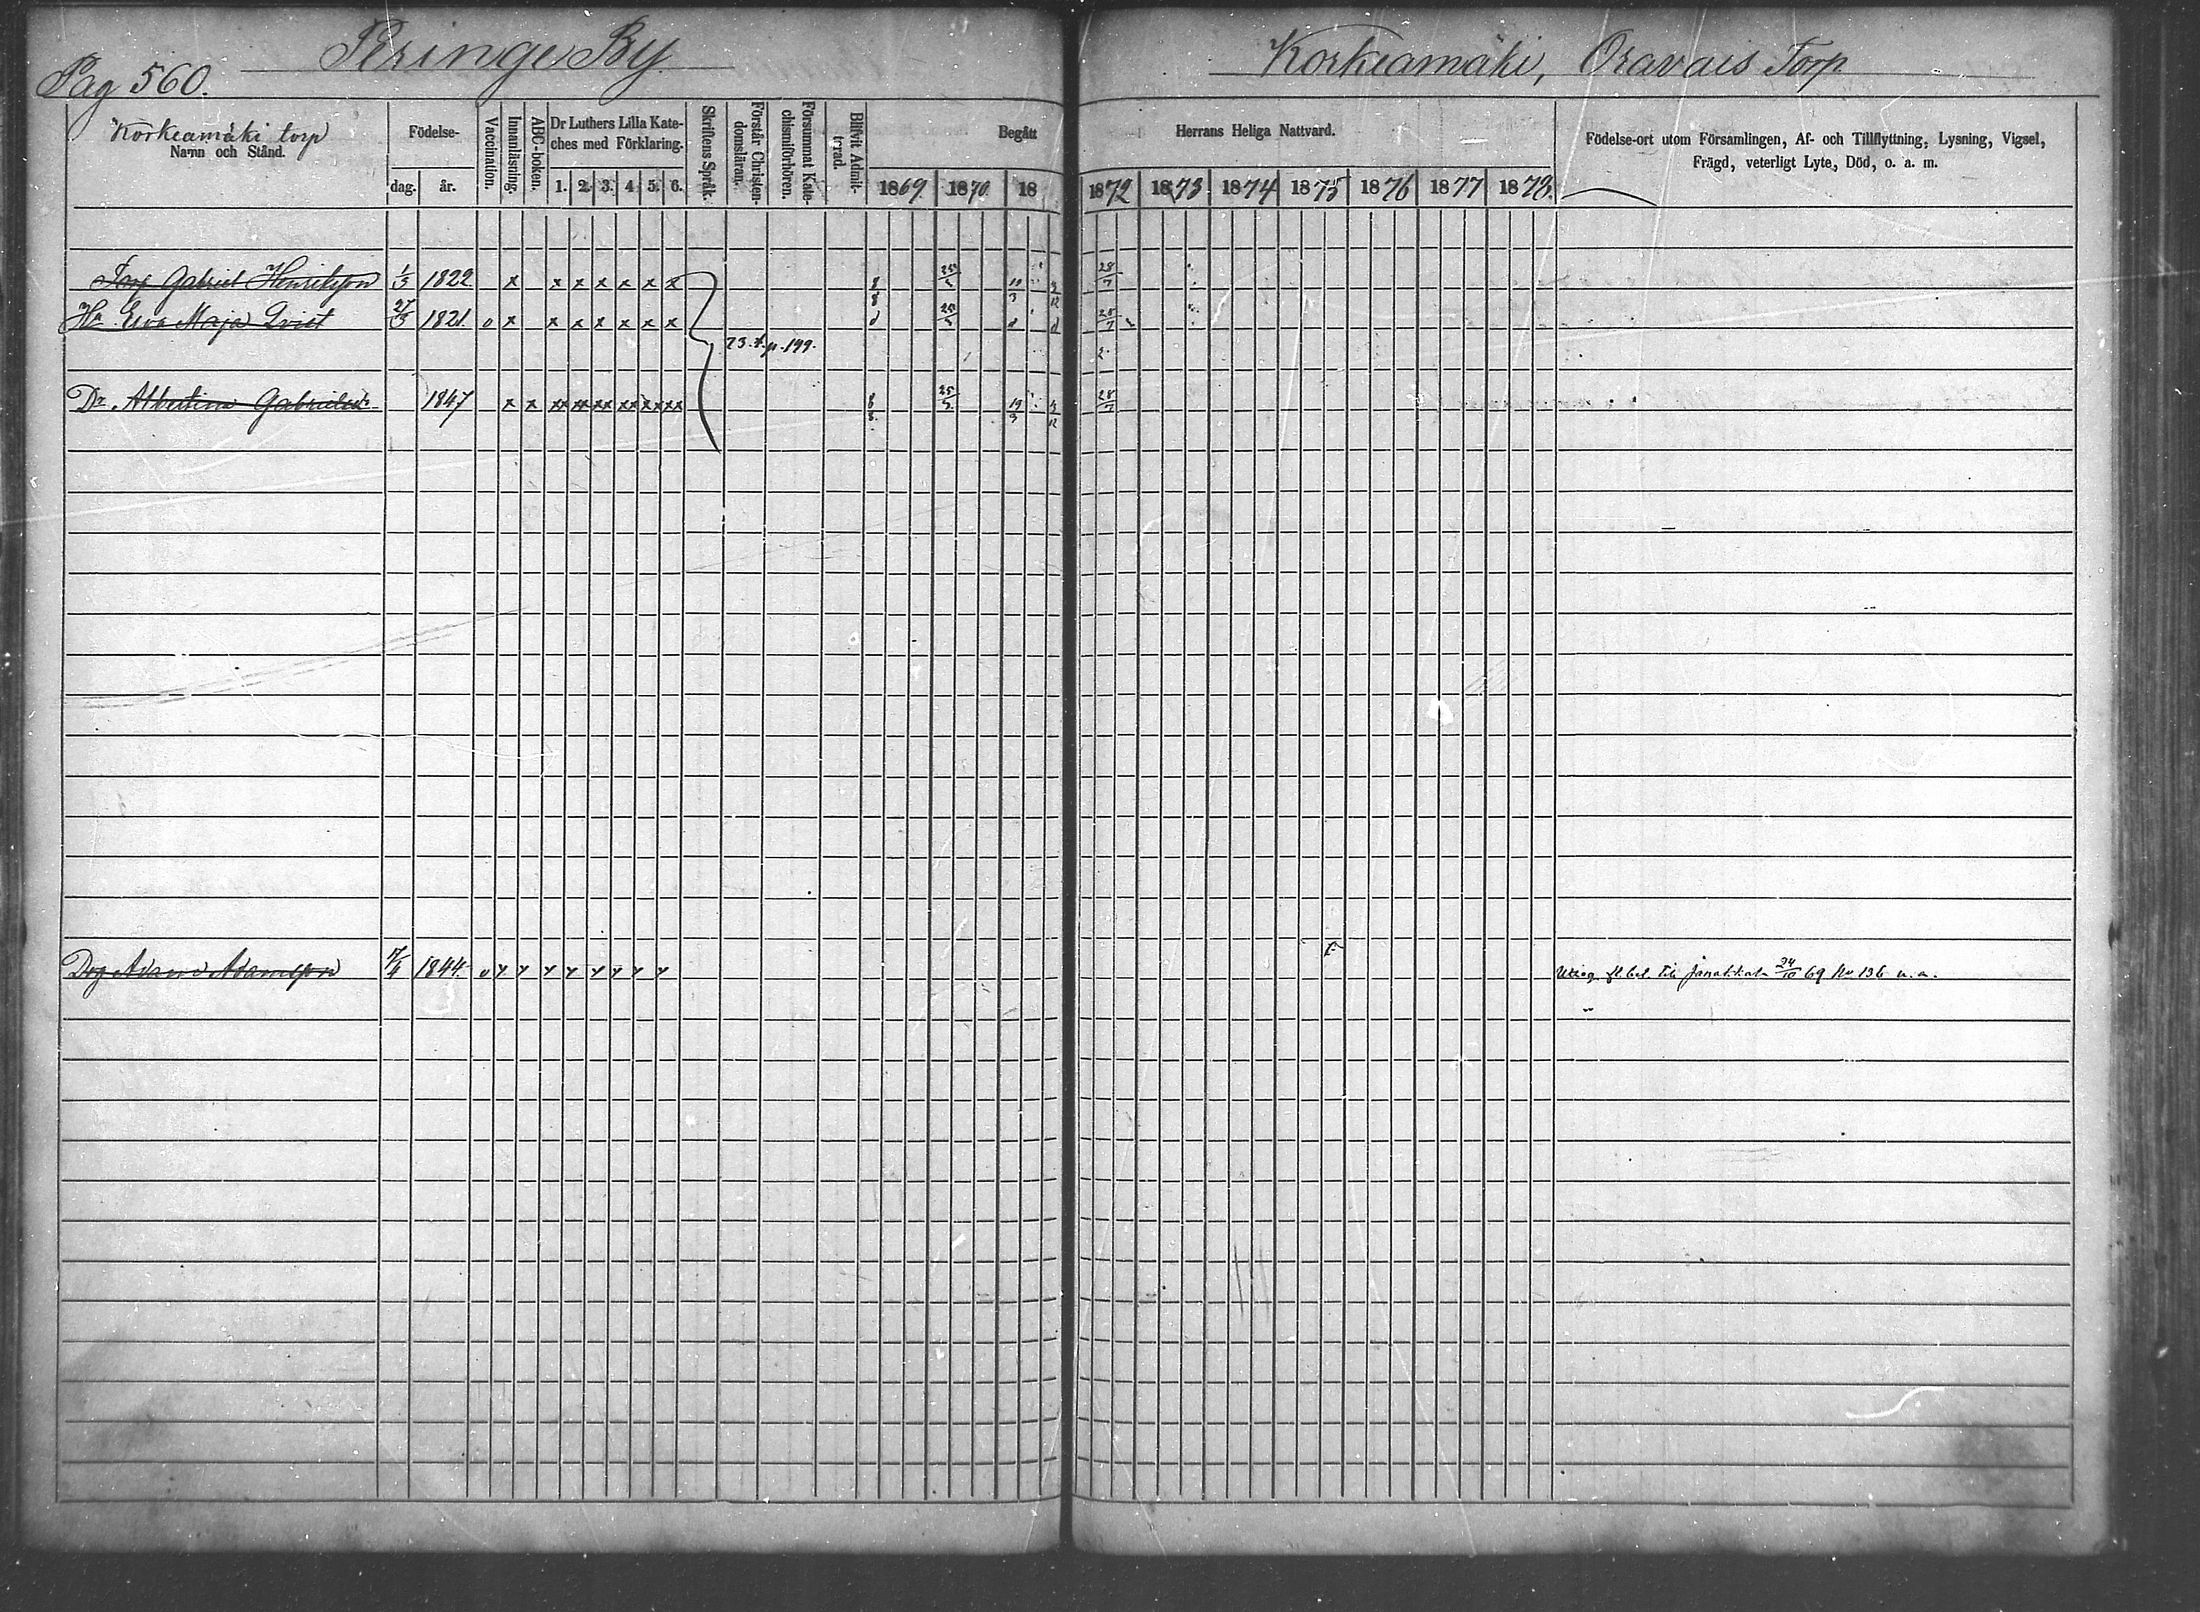 Pag 560.
Peringe By
Korkeamäki, Oravais Torp
Korkeamäki torp
Namn och Stånd.
Födelse-
dag. år.
Vaccination.
Innanläsning.
ABC-boken.
Dr Luthers Lilla Kate-
ches med Förklaring.
1. 2. 3. 4. 5. 6.
Skriftens Språk.
Förstår Christen-
domsläran.
Försummat Kate-
chismiförhören.
Blifvit Admit-
trad.
Begått
Herrans Heliga Nattvard.
1869. 1870. 18
1872 1873 1874 1875 1876 1877 1878.
Födelse-ort utom Församlingen, Af- och Tillflyttning, Lysning, Vigsel,
Frägd, veterligt Lyte, Död, o. a. m.
Torp Gabriel Henriksson 1/3 1822 x x x x x x x 8/8 25/5 28/7
Hu Eva Maja Qvist 27/3 1821. o x x x x x x x 25/5 28/7
73. t. p. 199.
Dr. Albertina Gabrielsdr 1847 x x xx xx xx xx xx xx 8/8 25/5 19/3 28/7
Drg Adam Adamsson 1844
fl. bet. till Janakkala 24/10 69 No 136 u. a.